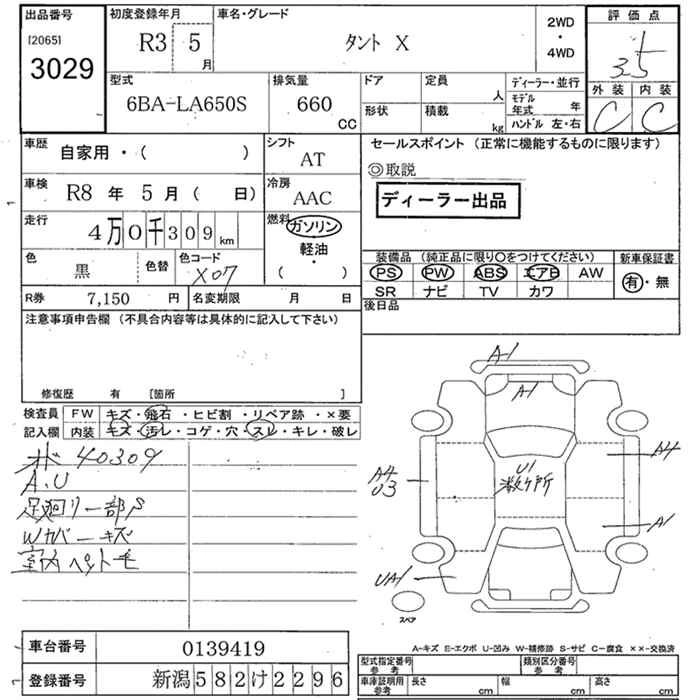 出品番号
[2065]
3029
初度登録年月
R3 5
月
車名・グレード
タント X
2WD
・
4WD
評価点
3.5
外装 内装
C C
型式
6BA-LA650S
排気量
660
CC
ドア
形状
定員
人
積載
kg
ディーラー・並行
モデル
年式 年
ハンドル 左・右
車歴
自家用・( )
シフト
AT
車検
R8 年 5 月 ( 日)
冷房
AAC
走行
4万0千309km
燃料
ガソリン
軽油
・
( )
色
黒
色替
色コード
X07
R券 7,150 円
名変期限 月 日
セールスポイント (正常に機能するものに限ります)
◎取説
ディーラー出品
装備品 (純正品に限り〇をつけてください)
PS PW ABS エアB AW
SR ナビ TV カワ
新車保証書
有・無
後日品
注意事項申告欄 (不具合内容等は具体的に記入して下さい)
修復歴 有 [箇所 ]
検査員
記入欄
FW キズ・飛石・ヒビ割・リペア跡・×要
内装 キズ・汚レ・コゲ・穴・スレ・キレ・破レ
オド 40309
A.U
足廻リ一部S
Wカバーキズ
室内ペット毛
A-1
A-1
A4
U3
U1
数ヶ所
A4
A1
UA1
スペア
A-キズ E-エクボ U-凹み W-補修跡 S-サビ C-腐食 ××-交換済
車台番号 0139419
登録番号 新潟582け2296
型式指定番号
参考
類別区分番号
参考
車庫証明用
参考
長さ cm
幅 cm
高さ cm